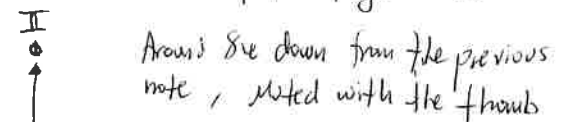 II
Around 8ve down from the previous
note, Muted with the thumb